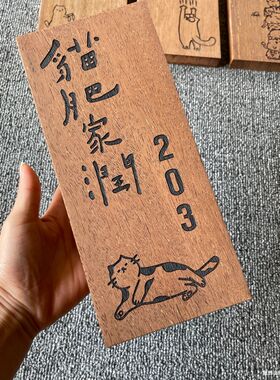 貓肥家潤
203